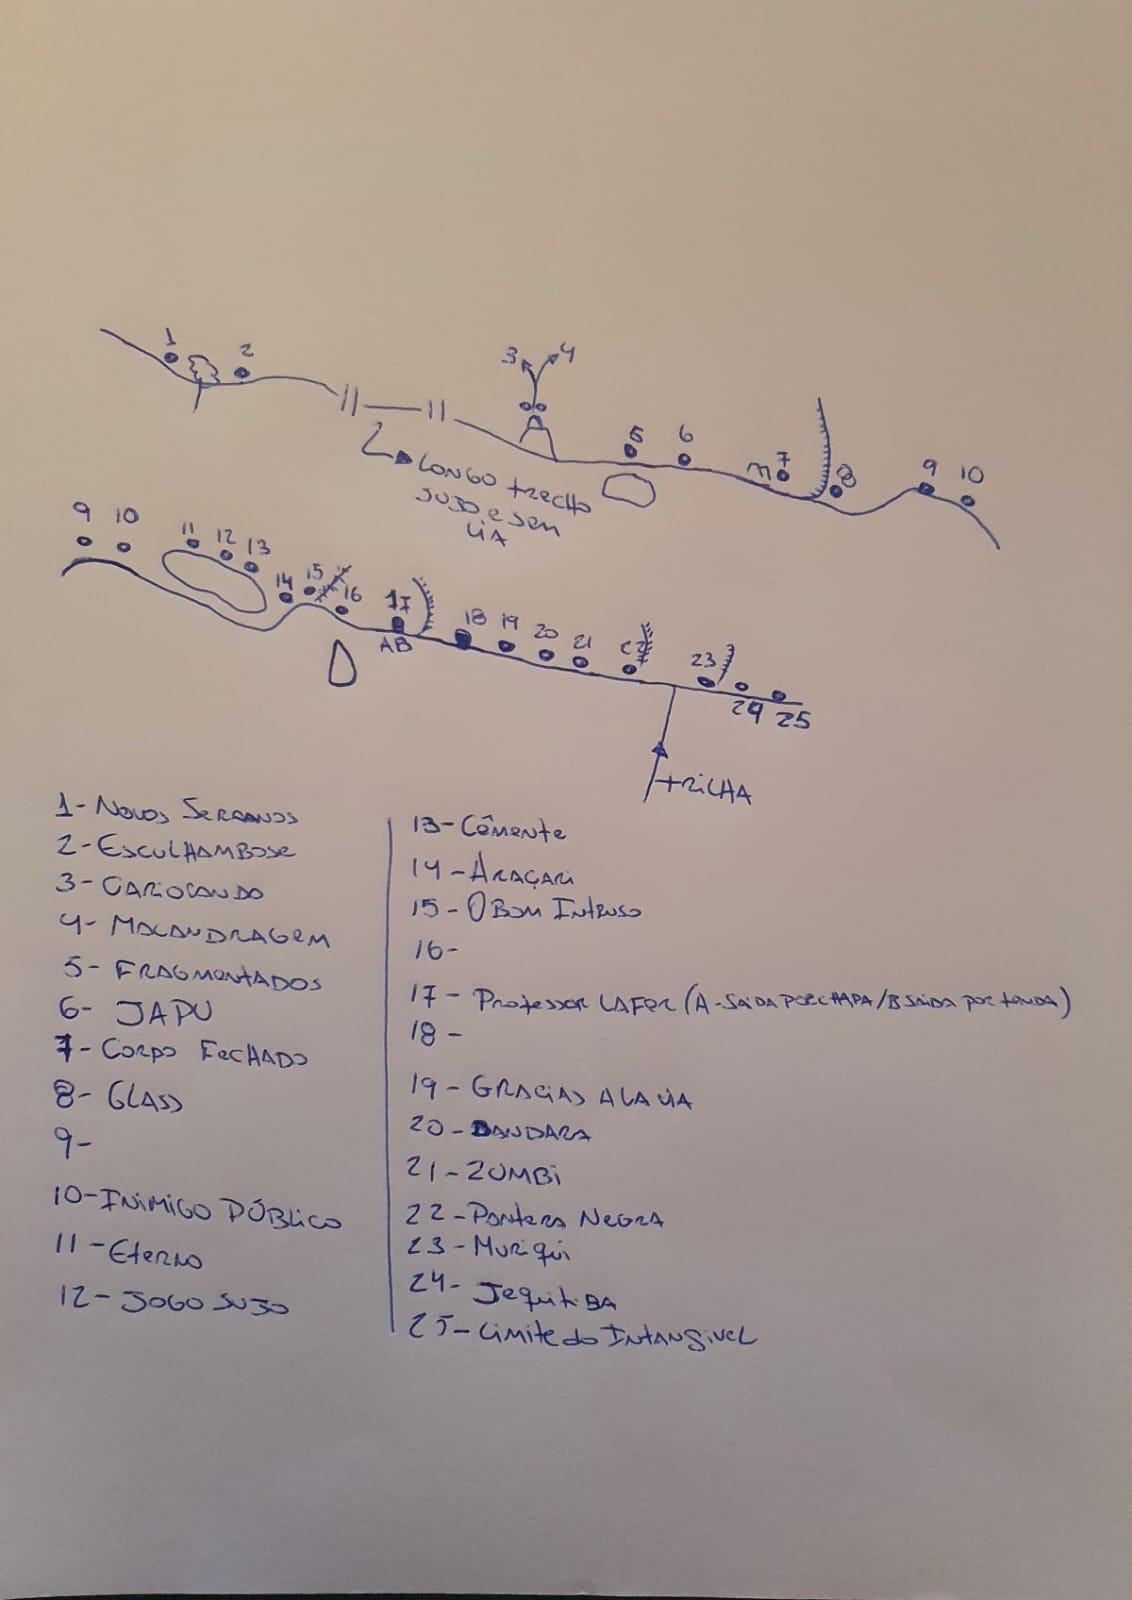 1
2
3
4
5
6
7
8
9
10
LONGO trecho
SUJO e sem
VIA
9
10
11
12
13
14
15
16
17
AB
18
19
20
21
22
23
24
25
trilha
1- Novos Serranos
2- Esculhambose
3- Cariocando
4- Malandragem
5- Fragmentados
6- JAPU
7- Corpo Fechado
8- GLASS
9-
10- Inimigo Público
11- Eterno
12- Jogo Sujo
13- Cêmente
14- Araçari
15- O Bom Intruso
16-
17- Professor Lafer (A-Saída por chapa/B Saída por fenda)
18-
19- Gracias a la via
20- Dandara
21- Zumbi
22- Pantera Negra
23- Muriqui
24- Jequitiba
25- Limite do Intangivel